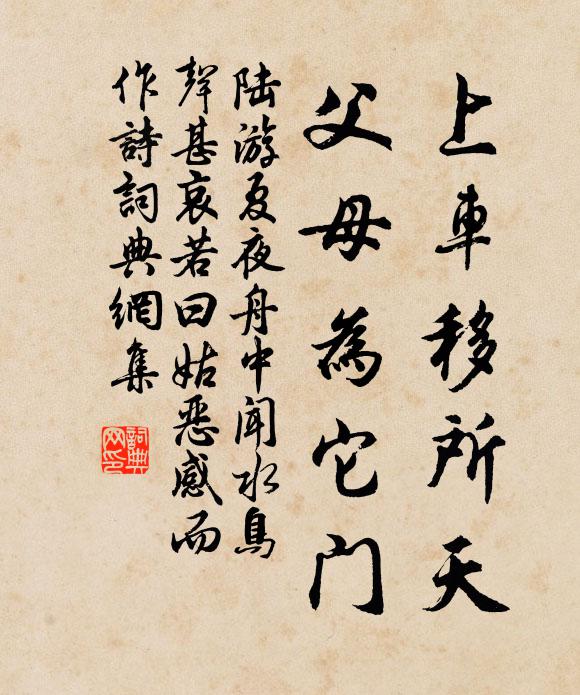 上車移所天
父母為它門
陆游夏夜舟中闻水鳥
聲甚哀若曰姑恶感而
作詩詞典網集
詞典网印